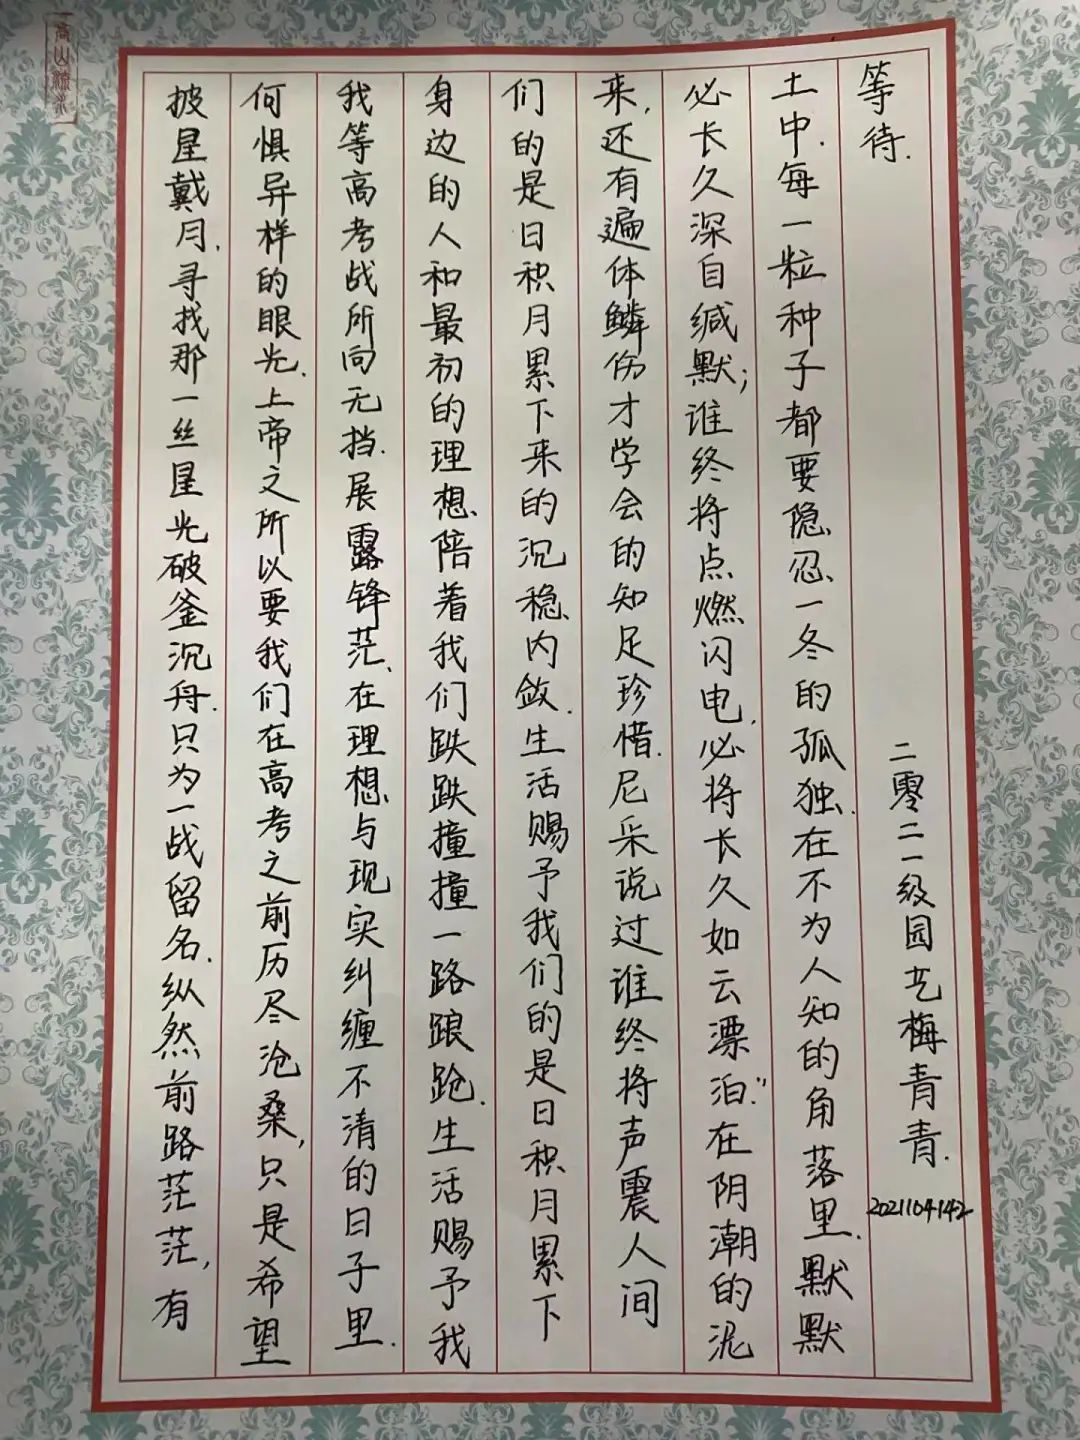 高山流水
披星戴月.寻找那一丝星光破釜沉舟.只为一战留名.纵然前路茫茫,有
何惧异样的眼光.上帝之所以要我们在高考之前历尽沧桑,只是希望
我等高考战所向无挡.展露锋茫、在理想与现实纠缠不清的日子里.
身边的人和最初的理想、陪着我们跌跌撞撞一路踉跄.生活赐予我
们的是日积月累下来的沉稳、内敛.生活赐予我们的是日积月累下
来,还有遍体鳞伤才学会的知足珍惜.尼采说过谁终将声震人间
必长久深自缄默;谁终将点燃闪电,必将长久如云漂泊."在阴潮的泥
土中.每一粒种子都要隐忍、一冬的孤独.在不为人知的角落里.默默
等待.
二零二一级园艺梅青青.
2021104142